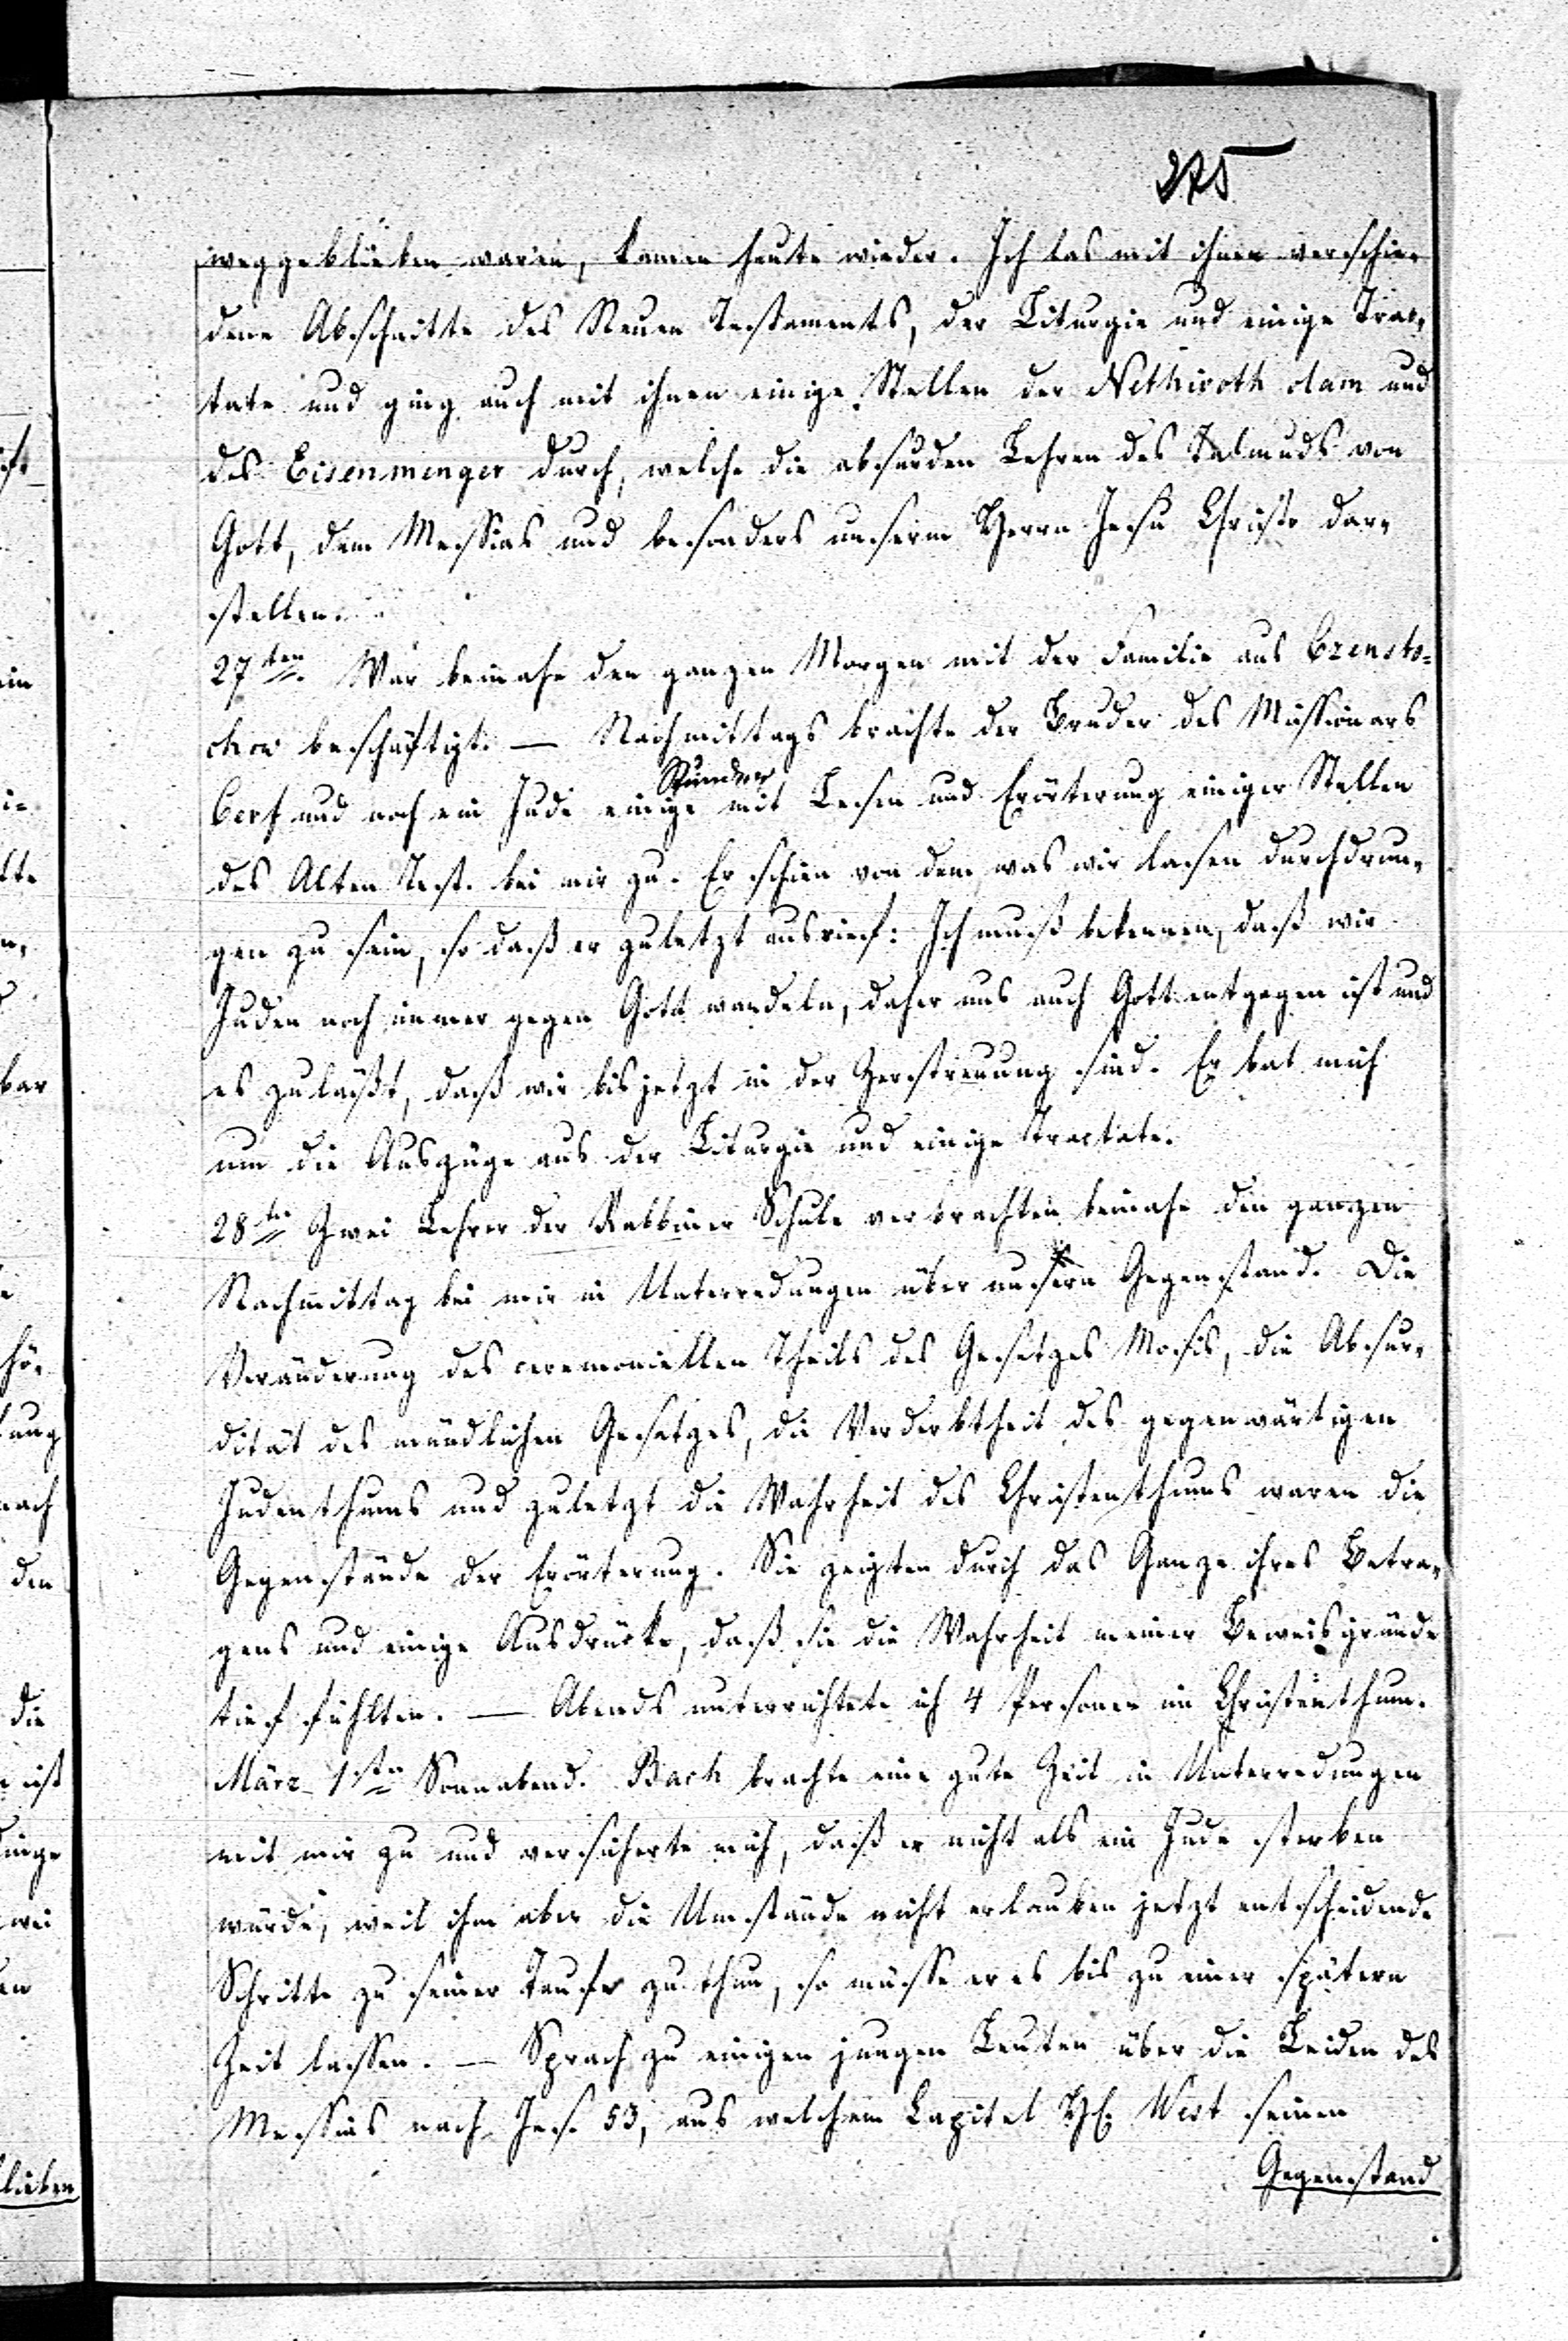 275
weggeblieben waren, kamen heute wieder. Ich las mit ihnen verschie-
dene Abschnitte des Neuen Testaments, der Liturgie und einige Trac-
tate und ging auch mit ihnen einige Stellen der Nethivoth olam und
des Eisenmenger durch, welche die absurden Lehren des Talmuds von
Gott, dem Messias und besonders unserm Herrn Jesu Christo dar-
stellen.
27ten. War beinahe den ganzen Morgen mit der Familie aus Czensto-
chow beschäftigt. — Nachmittags brachte der Bruder des Missionars
Stunden
Cerf und noch ein Jude einige mit Lesen und Erörterung einiger Stellen
des Alten Test. bei mir zu. Er schien von dem was wir lasen durchdrun-
gen zu sein, so daß er zuletzt ausrief: Ich muß bekennen, daß wir
Juden noch immer gegen Gott wandeln, daher uns auch Gott entgegen ist und
es zuläßt, daß wir bis jetzt in der Zerstreuung sind. Er bat mich
um die Auszüge aus der Liturgie und einige Tractate.
28ten Zwei Lehrer der Rabbiner Schule verbrachten beinahe den ganzen
Nachmittag bei mir in Unterredungen über unsern Gegenstand. Die
Veränderung des ceremoniellen Theils des Gesetzes Mosis, die Absur-
dität des mündlichen Gesetzes, die Verderbtheit des gegenwärtigen
Judenthums und zuletzt die Wahrheit des Christenthums waren die
Gegenstände der Erörterung. Sie zeigten durch das Ganze ihres Betra-
gens und einige Ausdrücke, daß sie die Wahrheit meiner Beweisgründe
tief fühlten. — Abends unterrichtete ich 4 Personen im Christenthum.
März 1sten Sonnabend. Bach brachte eine gute Zeit in Unterredungen
mit mir zu und versicherte mich, daß er nicht als ein Jude sterben
würde, weil ihm aber die Umstände nicht erlauben jetzt entscheidende
Schritte zu seiner Taufe zu thun, so müsse er es bis zu einer spätern
Zeit lassen. — Sprach zu einigen jungen Leuten über die Leiden des
Messias nach Jes. 53, aus welchem Capitel H. West seinen
Gegenstand